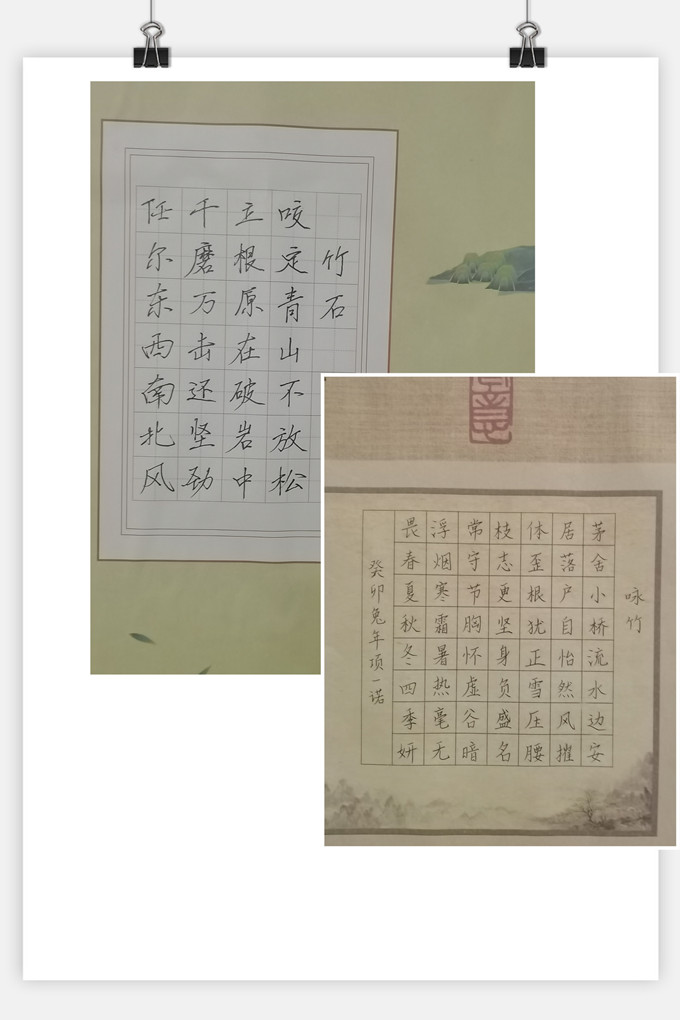 竹石
咬定青山不放松
立根原在破岩中
千磨万击还坚劲
任尔东西南北风
咏竹
茅舍小桥流水边安
居落户自怡然风摧
体歪根犹正雪压腰
枝志更坚身负盛名
常守节胸怀虚谷暗
浮烟寒霜暑热毫无
畏春夏秋冬四季妍
癸卯兔年项一诺